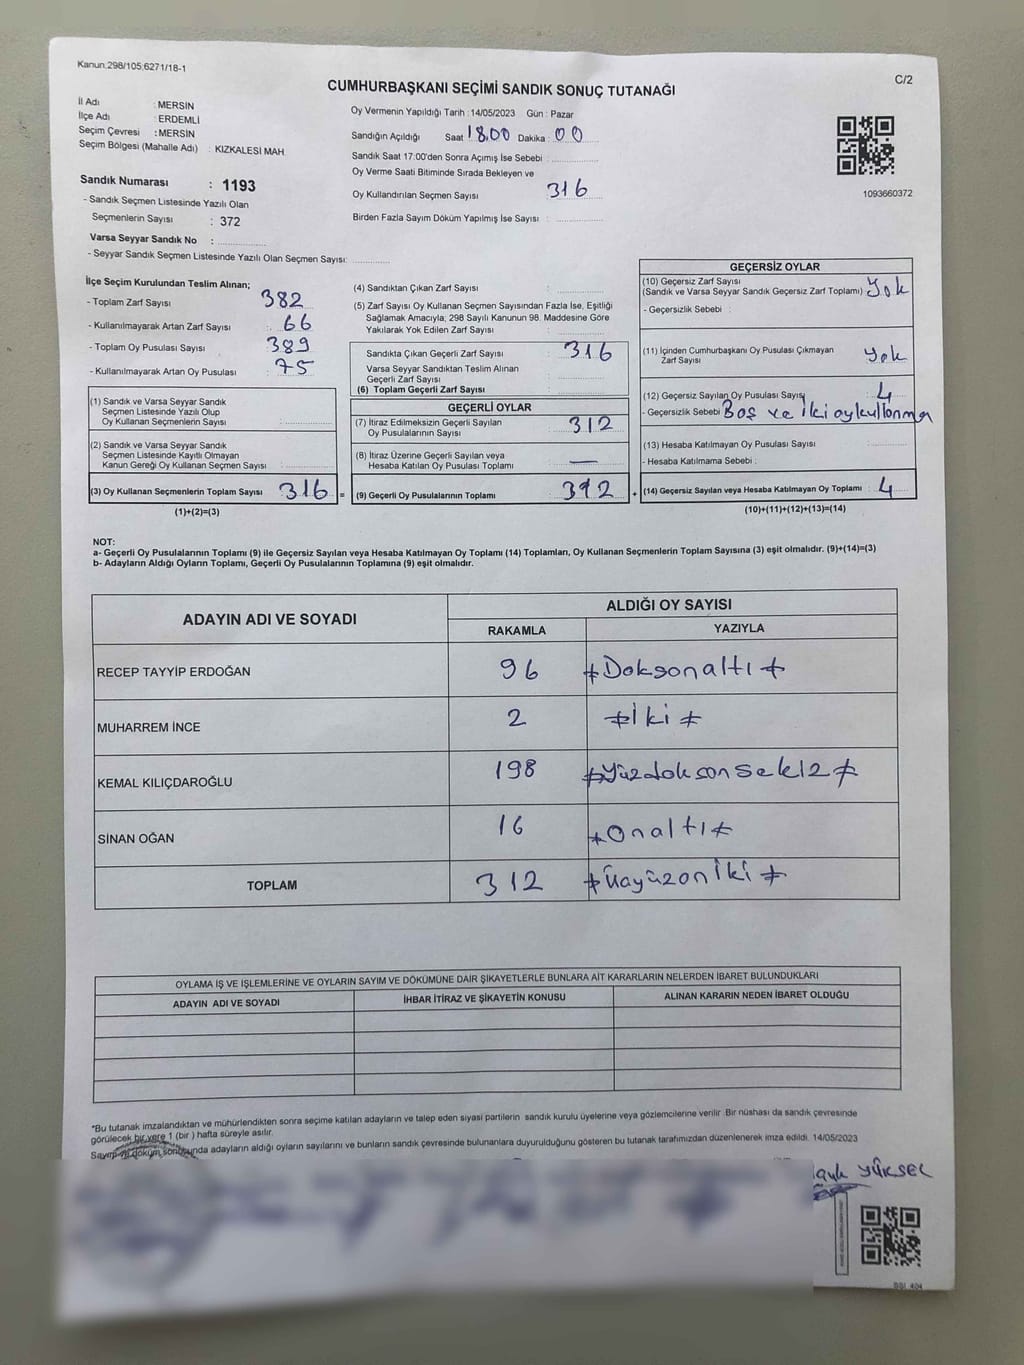 Kanun:298/105;6271/18-1
C/2
CUMHURBAŞKANI SEÇİMİ SANDIK SONUÇ TUTANAĞI
İl Adı : MERSİN
İlçe Adı : ERDEMLİ
Seçim Çevresi : MERSİN
Seçim Bölgesi (Mahalle Adı) : KIZKALESİ MAH
Sandık Numarası : 1193
- Sandık Seçmen Listesinde Yazılı Olan
Seçmenlerin Sayısı : 372
Varsa Seyyar Sandık No :
- Seyyar Sandık Seçmen Listesinde Yazılı Olan Seçmen Sayısı:
Oy Vermenin Yapıldığı Tarih : 14/05/2023 Gün : Pazar
Sandığın Açıldığı Saat 18.00 Dakika : 00
Sandık Saat 17:00'den Sonra Açımış İse Sebebi :
Oy Verme Saati Bitiminde Sırada Bekleyen ve
Oy Kullandırılan Seçmen Sayısı : 316
Birden Fazla Sayım Döküm Yapılmış İse Sayısı :
1093660372
İlçe Seçim Kurulundan Teslim Alınan;
- Toplam Zarf Sayısı : 382
- Kullanılmayarak Artan Zarf Sayısı : 66
- Toplam Oy Pusulası Sayısı : 389
- Kullanılmayarak Artan Oy Pusulası : 75
(1) Sandık ve Varsa Seyyar Sandık
Seçmen Listesinde Yazılı Olup
Oy Kullanan Seçmenlerin Sayısı :
(2) Sandık ve Varsa Seyyar Sandık
Seçmen Listesinde Kayıtlı Olmayan
Kanun Gereği Oy Kullanan Seçmen Sayısı :
(3) Oy Kullanan Seçmenlerin Toplam Sayısı : 316 =
(1)+(2)=(3)
(4) Sandıktan Çıkan Zarf Sayısı :
(5) Zarf Sayısı Oy Kullanan Seçmen Sayısından Fazla İse, Eşitliği
Sağlamak Amacıyla; 298 Sayılı Kanunun 98. Maddesine Göre
Yakılarak Yok Edilen Zarf Sayısı :
Sandıkta Çıkan Geçerli Zarf Sayısı : 316
Varsa Seyyar Sandıktan Teslim Alınan
Geçerli Zarf Sayısı :
(6) Toplam Geçerli Zarf Sayısı :
GEÇERLİ OYLAR
(7) İtiraz Edilmeksizin Geçerli Sayılan
Oy Pusulalarının Sayısı : 312
(8) İtiraz Üzerine Geçerli Sayılan veya
Hesaba Katılan Oy Pusulası Toplamı : —
(9) Geçerli Oy Pusulalarının Toplamı : 312 +
GEÇERSİZ OYLAR
(10) Geçersiz Zarf Sayısı
(Sandık ve Varsa Seyyar Sandık Geçersiz Zarf Toplamı) : Yok
- Geçersizlik Sebebi :
(11) İçinden Cumhurbaşkanı Oy Pusulası Çıkmayan
Zarf Sayısı : Yok
(12) Geçersiz Sayılan Oy Pusulası Sayısı : 4
- Geçersizlik Sebebi : Boş ve İki oy kullanma
(13) Hesaba Katılmayan Oy Pusulası Sayısı :
- Hesaba Katılmama Sebebi :
(14) Geçersiz Sayılan veya Hesaba Katılmayan Oy Toplamı : 4
(10)+(11)+(12)+(13)=(14)
NOT:
a- Geçerli Oy Pusulalarının Toplamı (9) ile Geçersiz Sayılan veya Hesaba Katılmayan Oy Toplamı (14) Toplamları, Oy Kullanan Seçmenlerin Toplam Sayısına (3) eşit olmalıdır. (9)+(14)=(3)
b- Adayların Aldığı Oyların Toplamı, Geçerli Oy Pusulalarının Toplamına (9) eşit olmalıdır.
ADAYIN ADI VE SOYADI
ALDIĞI OY SAYISI
RAKAMLA YAZIYLA
RECEP TAYYİP ERDOĞAN 96 Doksanaltı
MUHARREM İNCE 2 İki
KEMAL KILIÇDAROĞLU 198 Yüzdoksonsekiz
SİNAN OĞAN 16 Onaltı
TOPLAM 312 Üçyüzoniki
OYLAMA İŞ VE İŞLEMLERİNE VE OYLARIN SAYIM VE DÖKÜMÜNE DAİR ŞİKAYETLERLE BUNLARA AİT KARARLARIN NELERDEN İBARET BULUNDUKLARI
ADAYIN ADI VE SOYADI İHBAR İTİRAZ VE ŞİKAYETİN KONUSU ALINAN KARARIN NEDEN İBARET OLDUĞU
*Bu tutanak imzalandıktan ve mühürlendikten sonra seçime katılan adayların ve talep eden siyasi partilerin sandık kurulu üyelerine veya gözlemcilerine verilir. Bir nüshası da sandık çevresinde
görülecek bir yere 1 (bir ) hafta süreyle asılır.
Sayım ve döküm sonucunda adayların aldığı oyların sayılarını ve bunların sandık çevresinde bulunanlara duyurulduğunu gösteren bu tutanak tarafımızdan düzenlenerek imza edildi. 14/05/2023
YÜKSEL